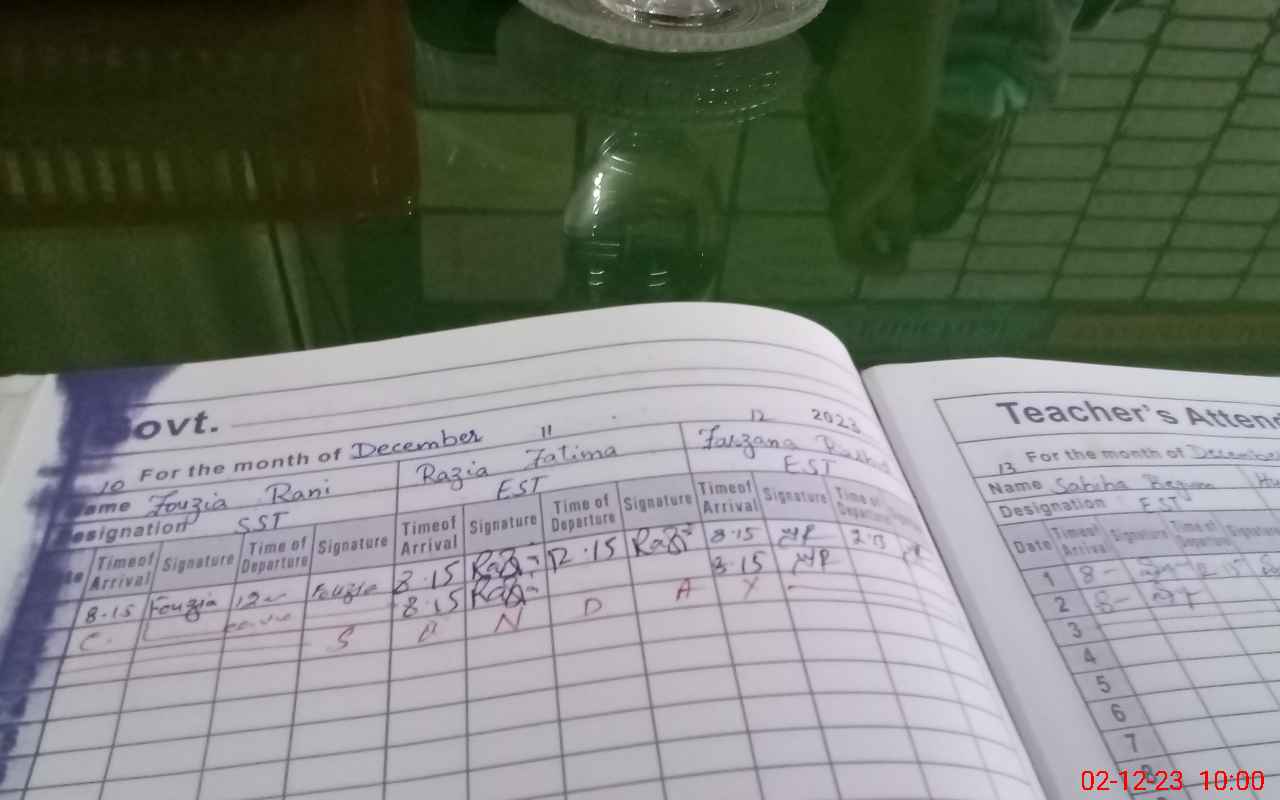 ovt.
10 For the month of December 11 12 2023
ame Fouzia Rani Razia Fatima Farzana
esignation SST EST EST
Timeof Arrival Signature Time of Departure Signature Timeof Arrival Signature Time of Departure Signature Timeof Arrival Signature
8.15 Fouzia Fouzia 8.15 12.15 8.15
8.15 8.15
S U N D A Y
Teacher's Attend
13 For the month of December
Name Sabiha Begum
Designation EST
Date Timeof Arrival Signature Time of Departure Signature
1 8- 12.15
2 8-
3
4
5
6
7
8
02-12-23 10:00